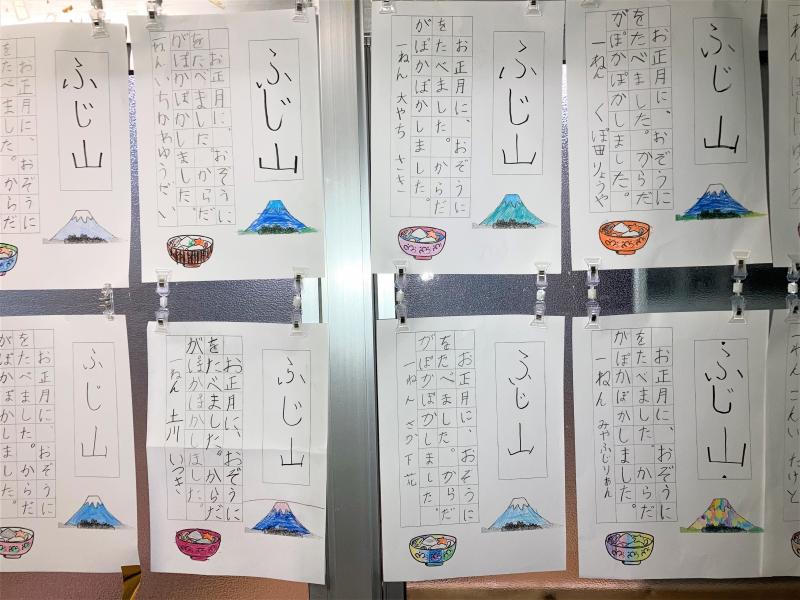 ふじ山
お正月に、おぞうに
をたべました。からだ
ふじ山
お正月に、おぞうに
をたべました。からだ
がぽかぽかしました。
一ねん いちかわゆうだい
ふじ山
お正月に、おぞうに
をたべました。からだ
がぽかぽかしました。
一ねん 大やち ささ
ふじ山
お正月に、おぞうに
をたべました。からだ
がぽかぽかしました。
一ねん くぼ田りょうや
一ねん
ふじ山
お正月に、おぞうに
をたべました。からだ
がぽかぽかしました。
ふじ山
お正月に、おぞうに
をたべました。からだ
がぽかぽかしました
一ねん 土川 いつき
ふじ山
お正月に、おぞうに
をたべました。からだ
がぽかぽかしました。
一ねん さか下花
ふじ山
お正月に、おぞうに
をたべました。からだ
がぽかぽかしました。
一ねん みやふじりあん
一ねん たけと